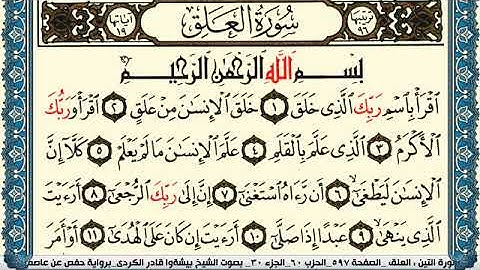 ترتيبها ٩٦ سُورَةُ العَلَقِ آياتها ١٩
بِسْمِ اللَّهِ الرَّحْمَٰنِ الرَّحِيمِ
ٱقْرَأْ بِٱسْمِ رَبِّكَ ٱلَّذِى خَلَقَ ١ خَلَقَ ٱلْإِنسَٰنَ مِنْ عَلَقٍ ٢ ٱقْرَأْ وَرَبُّكَ
ٱلْأَكْرَمُ ٣ ٱلَّذِى عَلَّمَ بِٱلْقَلَمِ ٤ عَلَّمَ ٱلْإِنسَٰنَ مَا لَمْ يَعْلَمْ ٥ كَلَّآ إِنَّ
ٱلْإِنسَٰنَ لَيَطْغَىٰٓ ٦ أَن رَّءَاهُ ٱسْتَغْنَىٰٓ ٧ إِنَّ إِلَىٰ رَبِّكَ ٱلرُّجْعَىٰٓ ٨ أَرَءَيْتَ
ٱلَّذِى يَنْهَىٰ ٩ عَبْدًا إِذَا صَلَّىٰٓ ١٠ أَرَءَيْتَ إِن كَانَ عَلَى ٱلْهُدَىٰٓ ١١ أَوْ أَمَرَ
ورة التين ، العلق _الصفحة ٥٩٧_الحزب ٦٠_الجزء ٣٠_ بصوت الشيخ بيشةوا قادر الكردى_برواية حفص عن عاصم